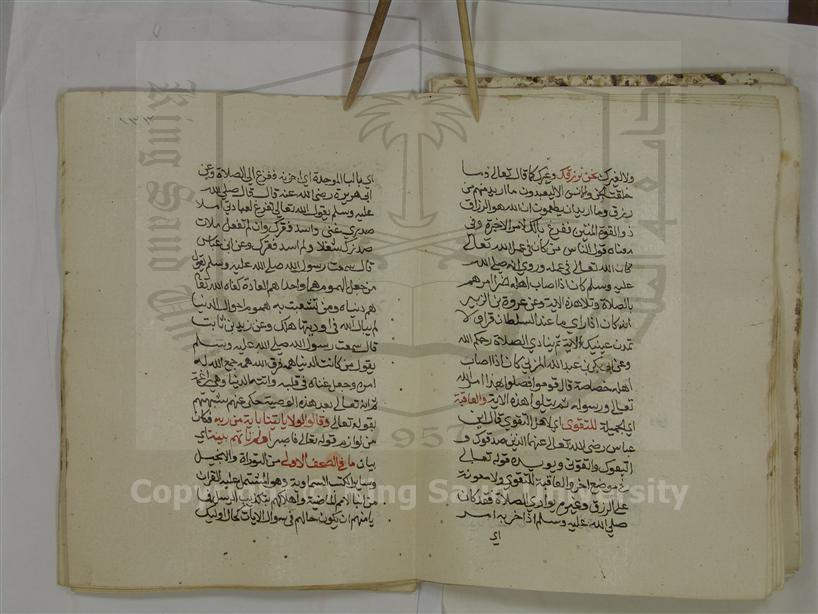 ولا لغيرك نحن نرزقك وغيرك كما قال تعالى وما
خلقت الجن والانس الا ليعبدون ما اريد منهم من
رزق وما اريد ان يطعمون ان الله هو الرزاق
ذو القوة المتين ففرغ بالك لامر الاخرة وفي
معناه قول الناس من كان في عمل الله تعالى
كان الله تعالى في عمله وروي انه صلى الله
عليه وسلم كان اذا اصاب اهله ضر امرهم
بالصلاة وتلا هذه الاية وعن عروة بن الزبير
انه كان اذا راي ما عند السلطان قرا ولا
تمدن عينيك الاية ثم ينادي الصلاة رحمكم الله
وعن بكر بن عبد الله المزني كان اذا اصاب
اهله خصاصة قال قوموا فصلوا بهذا امر الله
تعالى ورسوله ثم يتلوا هذه الاية والعاقبة
اي الجميلة للتقوى اي لاهل التقوى قال ابن
عباس رضي الله تعالى عنهما الذين صدقوك و
اتبعوك واتقوني ويويده قوله تعالى
في موضع اخر والعاقبة للمتقين ولا معونة
على الرزق وغيره يوازي الصلاة فقد كان
صلى الله عليه وسلم اذا حزبه امر
اي
اي بالباء الموحدة اي احزنه ففزع الى الصلاة وعن
ابي هريرة رضي الله عنه قال قال صلى الله
عليه وسلم يقول الله تعالى تفرغ لعبادتي املا
صدرك غنى واسد فقرك وان لم تفعل ملات
صدرك شغلا ولم اسد فقرك وعن ابن عباس
قال سمعت رسول الله صلى الله عليه وسلم يقول
من جعل الهموم هما واحدا هم المعاد كفاه الله تعالى
هم دنياه ومن تشعبت به هموم احوال الدنيا
لم يبال الله في اي اوديتها هلك وعن زيد بن ثابت
قال سمعت رسول الله صلى الله عليه وسلم
يقول من كانت الدنيا همه فرق الله همه جمع الله له
امره وجعل غناه في قلبه واتته الدنيا وهي راغمة
الله تعالى بعد هذه الوصية حكى عنهم شبهتهم
بقوله تعالى وقالوا لولا ياتينا باية من ربه فكان
من لوازم قوله تعالى اولم تاتهم بينة اي
بيان ما في الصحف الاولى من التوراة والانجيل
وساير الكتب السماوية وهو المشتمل عليه القران
من انباء الامم الماضية واهلاكهم بتكذيب الرسل فما
يامنهم ان يكون حالهم في سوال الايات كحال اوليك
Copyright © King Saud University
King Saud University
1957